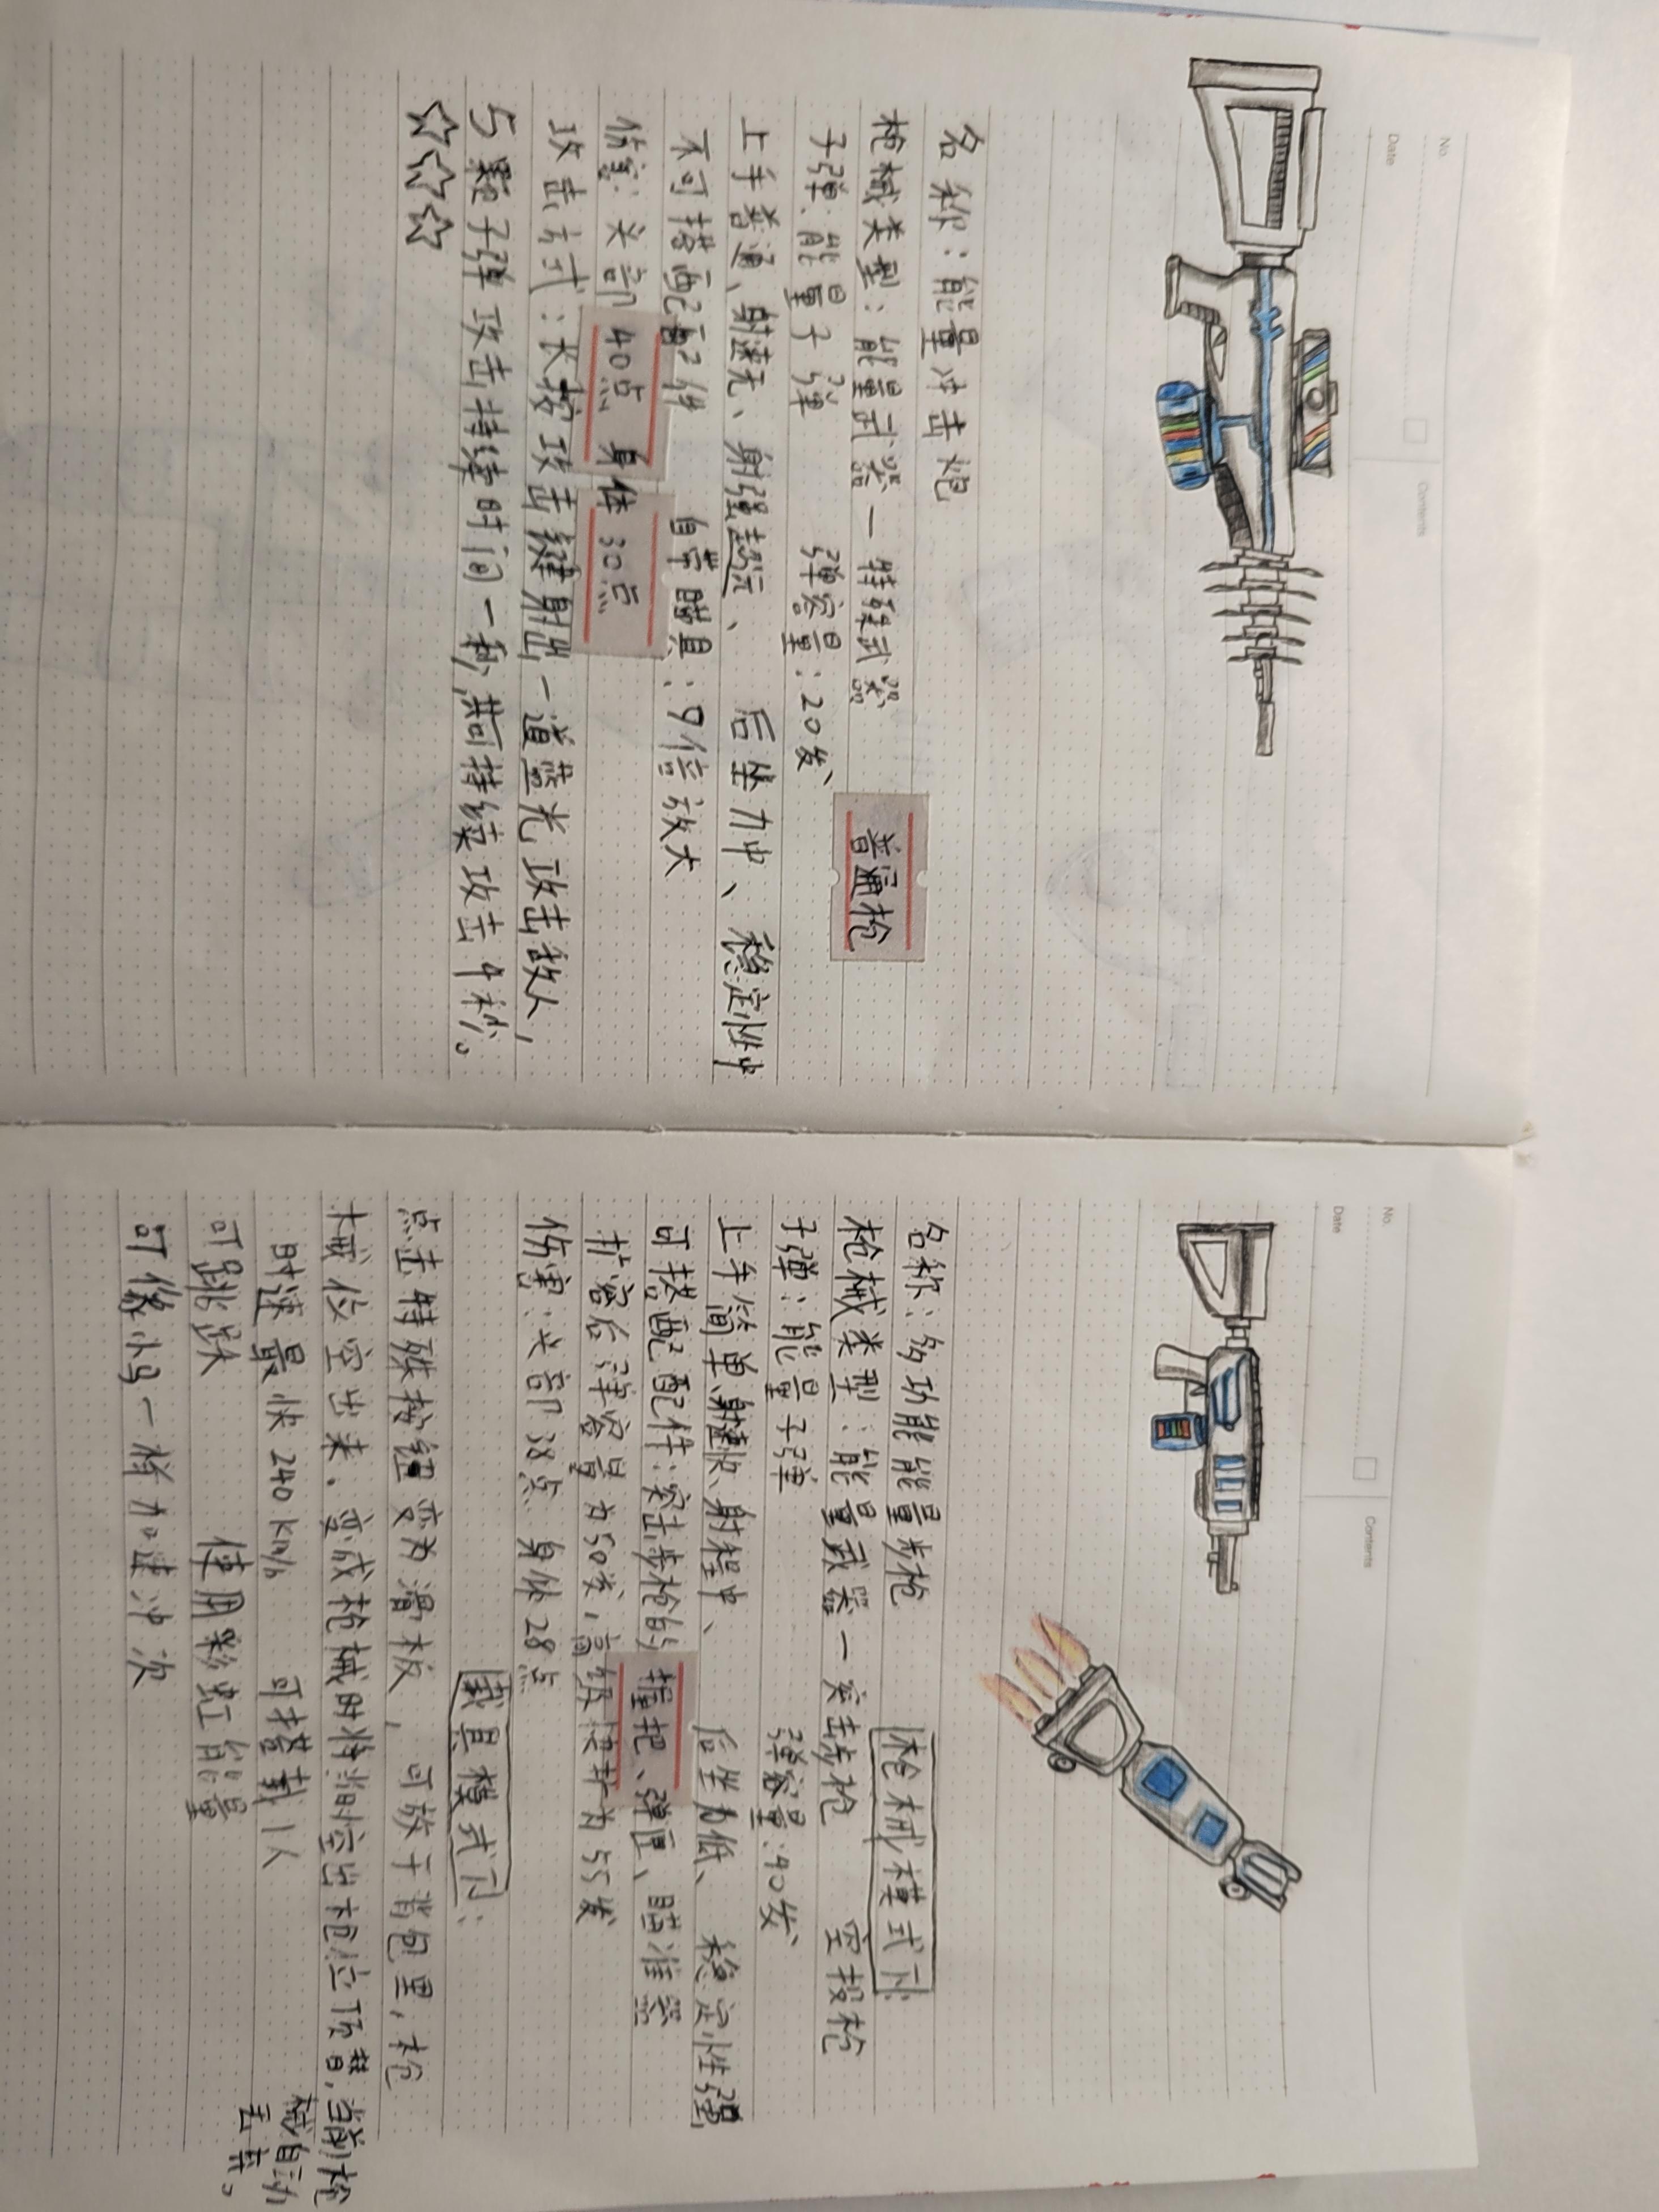 No.
Date
Contents
名称：能量冲击炮
枪械类型：能量武器一特殊武器 普通枪
子弹：能量子弹 弹容量：20发
上手普通、射速无、射强超远、后坐力中、稳定性中
不可搭配配件 自带瞄具：9倍放大
伤害：头部40点 身体30点
攻击方式：长按攻击键射出一道蓝光攻击敌人，
5颗子弹攻击持续时间一秒，共可持续攻击4秒。
☆☆☆
No.
Date
Contents
名称：多功能能量步枪 枪械模式下：
枪械类型：能量武器一突击步枪 空投枪
子弹：能量子弹 弹容量：40发
上手简单、射速快、射程中、后坐力低、稳定性强
可搭配配件：突击步枪的握把、弹匣、瞄准器
扩容后弹容量为50发，高级扩为55发
伤害：头部38点 身体28点
载具模式下：
点击特殊按钮变为滑板，可放于背包里，枪
械位空出来。变成枪械时将当时空出枪位顶替，当前枪
械自动丢弃。
时速最快240km/h 可搭载1人
可跳跃 使用彩虹能量
可像小鸟一样加速冲次